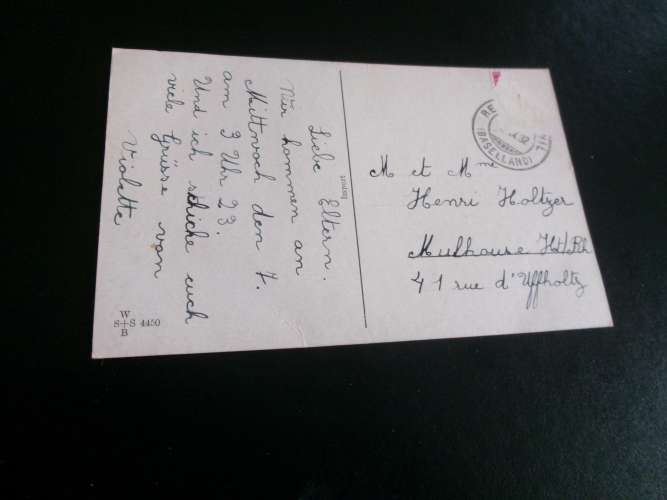 Liebe Eltern.
Wir kommen an
Mittwoch den 7.
am 9 Uhr 23.
Und ich schicke euch
viele Grüsse von
Violette
W
S+S 4450
B
Imprimé
(BASELLAND)
M et Mme
Henri Holtzer
Mulhouse Ht/Rh
41 rue d'Uffholtz